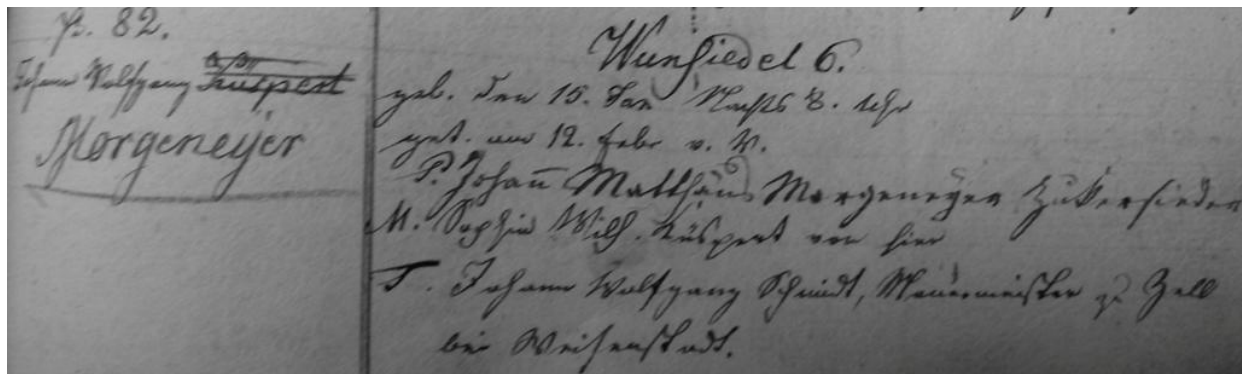 p. 82.
Johann Wolfgang Küspert
Morgeneyer
Wunsiedel 6.
geb. den 15. Jan Nachts 8. Uhr
get. am 12. Febr v. V.
P. Johan̄ Matthäus Morgeneyer Zukersieder
M. Sophia Wilh. Küspert von hier
T. Johann Wolfgang Schmidt, Mauermeister zu Zell
bei Weisenstadt.